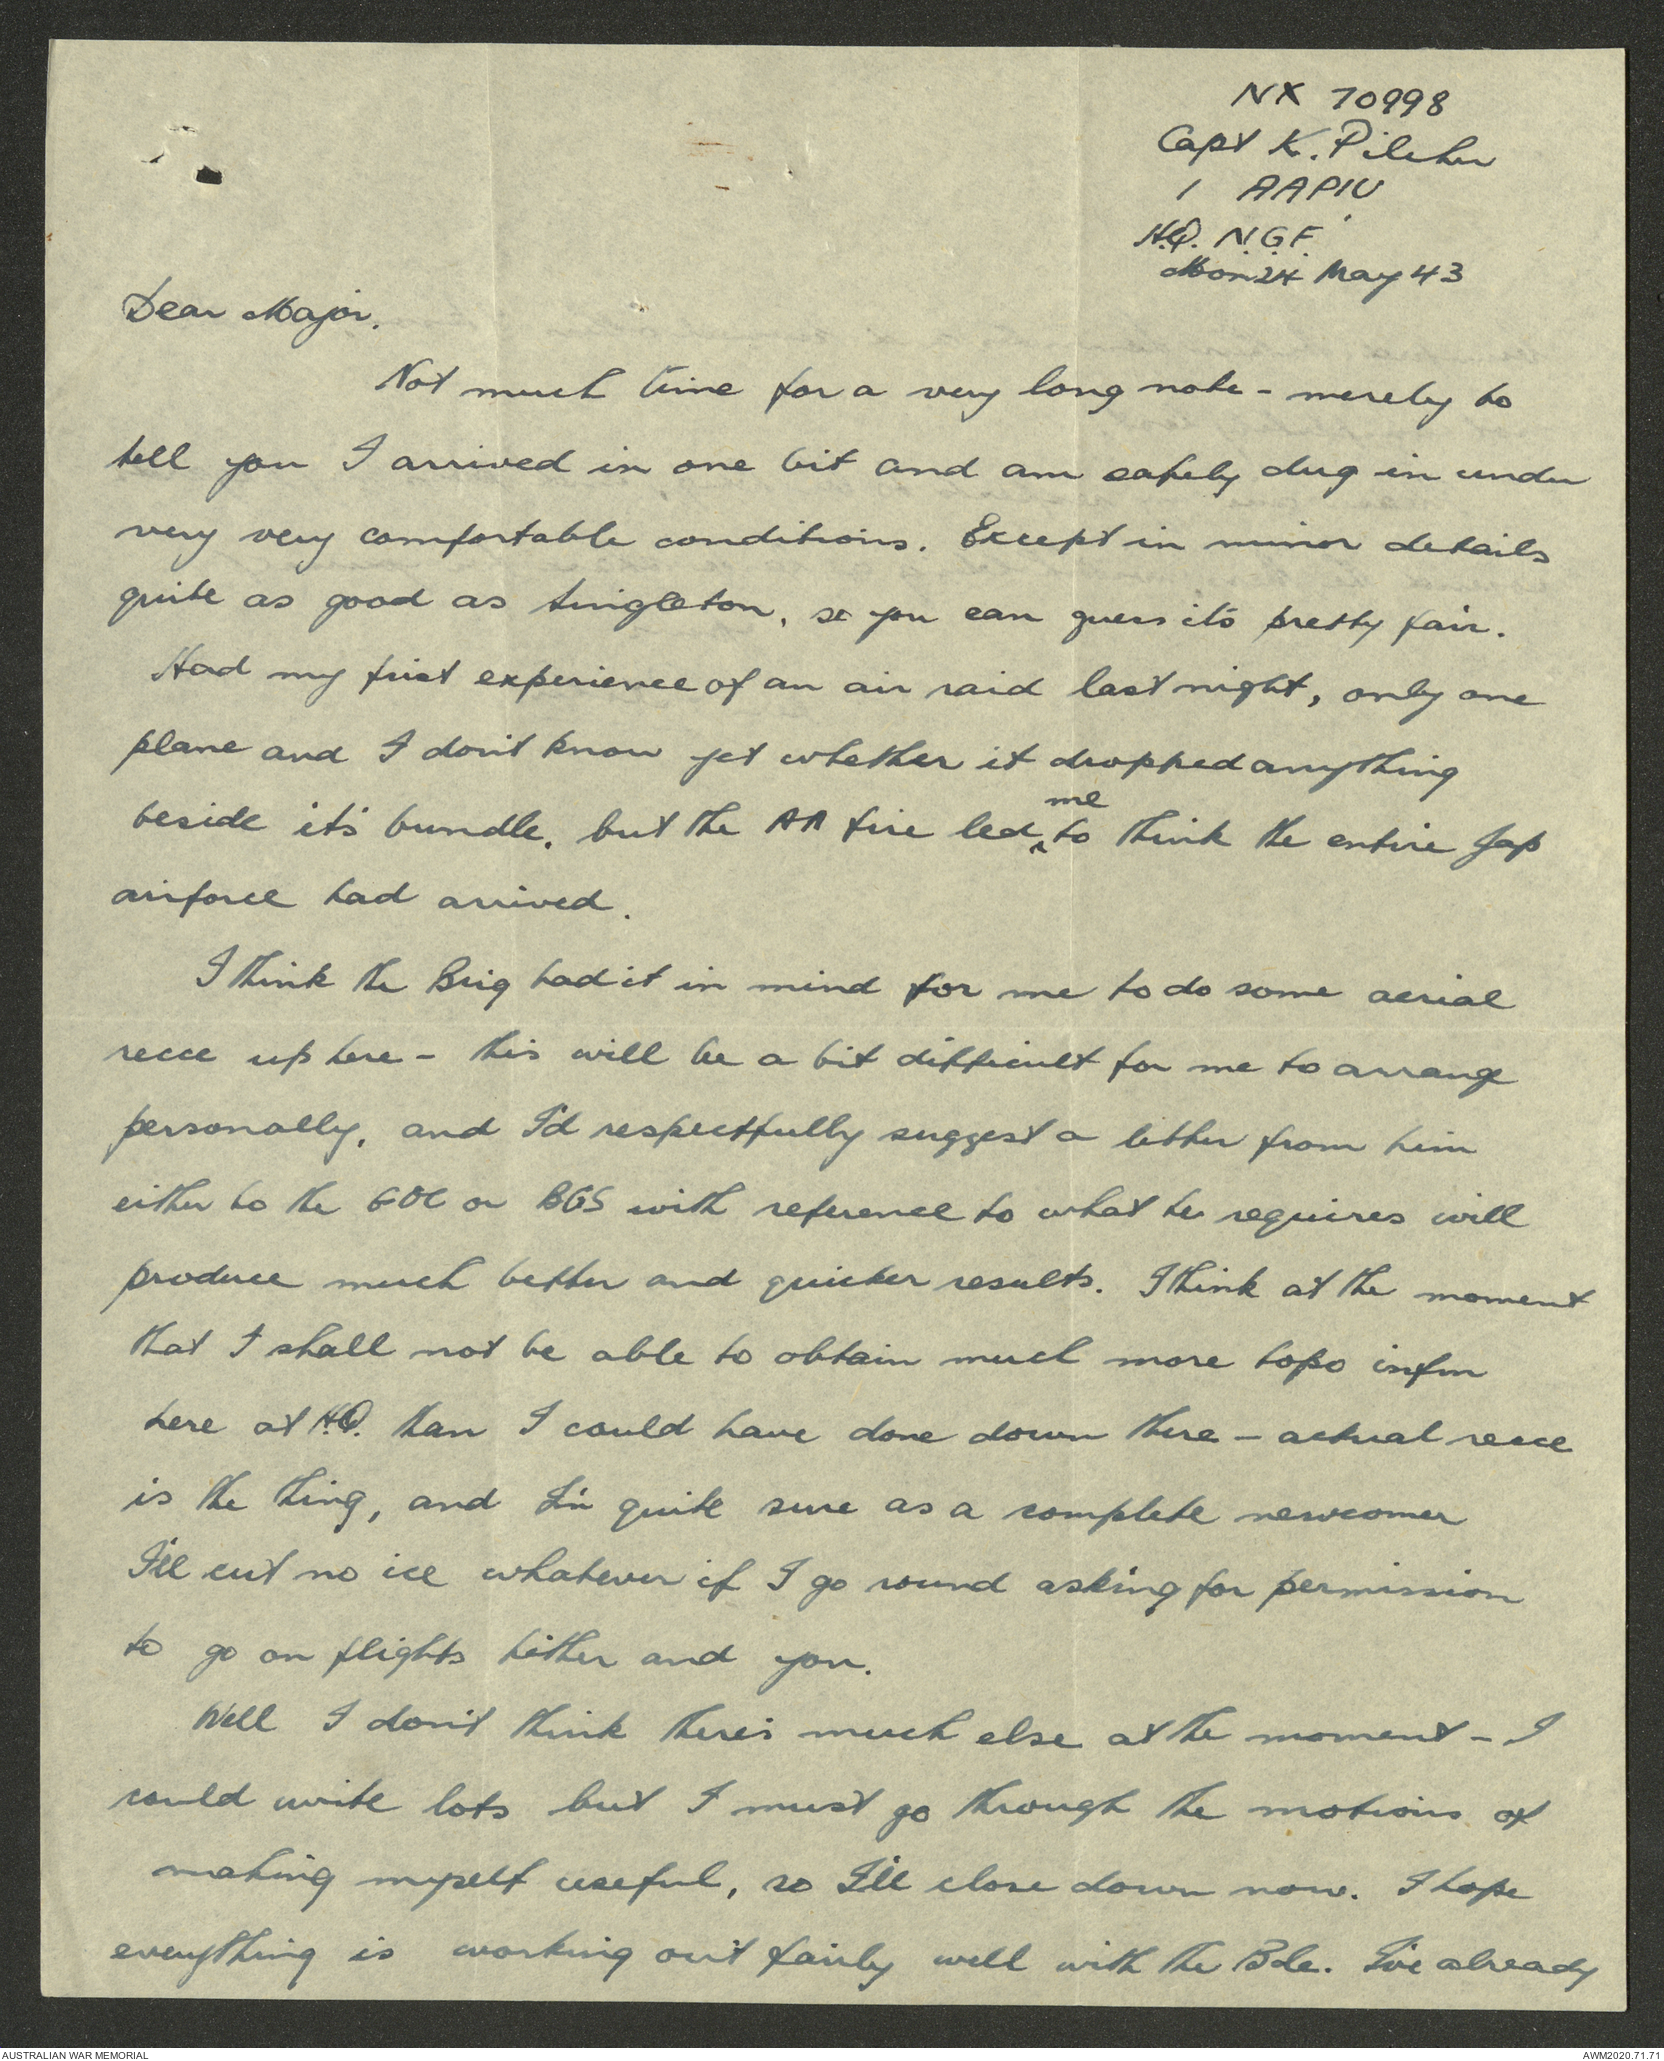 NX 70998
Capt K. Pilcher
1 AAPIU
H.Q. N.G.F.
Mon 24 May 43
Dear Major.
Not much time for a very long note - merely to
tell you I arrived in one bit and am safely dug in under
very very comfortable conditions. Except in minor details
quite as good as Singleton, so you can guess it's pretty fair.
Had my first experience of an air raid last night, only one
plane and I don't know yet whether it dropped anything
me
beside it's bundle, but the AA fire led ^ to think the entire Jap
airforce had arrived.
I think the Brig had it in mind for me to do some aerial
recce up here - this will be a bit difficult for me to arrange
personally, and I'd respectfully suggest a letter from him
either to the GOC or BGS with reference to what he requires will
produce much better and quicker results. I think at the moment
that I shall not be able to obtain much more topo infm
here at H.Q. than I could have done down there - actual recce
is the thing, and I'm quite sure as a complete newcomer
I'll cut no ice whatever if I go round asking for permission
to go on flights hither and yon.
Well I don't think there's much else at the moment - I
could write lots but I must go through the motions of
making myself useful, so I'll close down now. I hope
everything is working out fairly well with the Bde. I've already
AUSTRALIAN WAR MEMORIAL
AWM2020.71.71